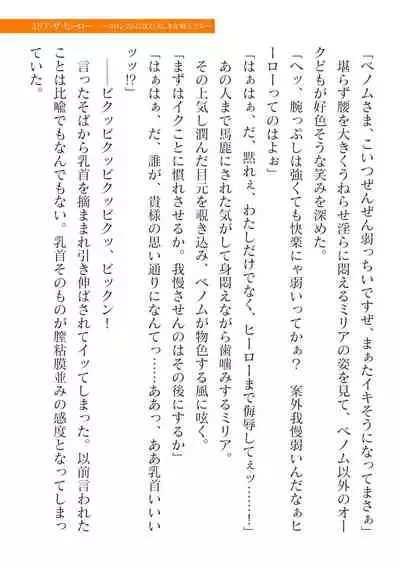 ミリア・ザ・ヒーロー
「ベノムさま、こいつぜんぜん弱っちいですぜ、まぁたイキそうになってまさぁ」
堪らず腰を大きくうねらせ淫らに悶えるミリアの姿を見て、ベノム以外のオー
クどもが好色そうな笑みを深めた。
「ヘッ、腕っぷしは強くても快楽にゃ弱いってかぁ？　案外我慢弱いんだなぁヒ
ーローってのはよぉ」
「はぁはぁ、だ、黙れぇ、わたしだけでなく、ヒーローまで侮辱してぇッ……」
あの人まで馬鹿にされた気がして身悶えながら歯噛みするミリア。
その上気し潤んだ目元を覗き込み、ベノムが物色する風に呟く。
「まずはイクことに慣れさせるか。我慢させんのはその後にするか」
「はぁはぁ、だ、誰が、貴様の思い通りになんてっ……ああっ、ああ乳首いいい
ッッ!?」
――ビクッビクッビクッビクッ、ビックン！
言ったそばから乳首を摘ままれ引き伸ばされてイッてしまった。以前言われた
ことは比喩でもなんでもない。乳首そのものが膣粘膜並みの感度となってしまっ
ていた。